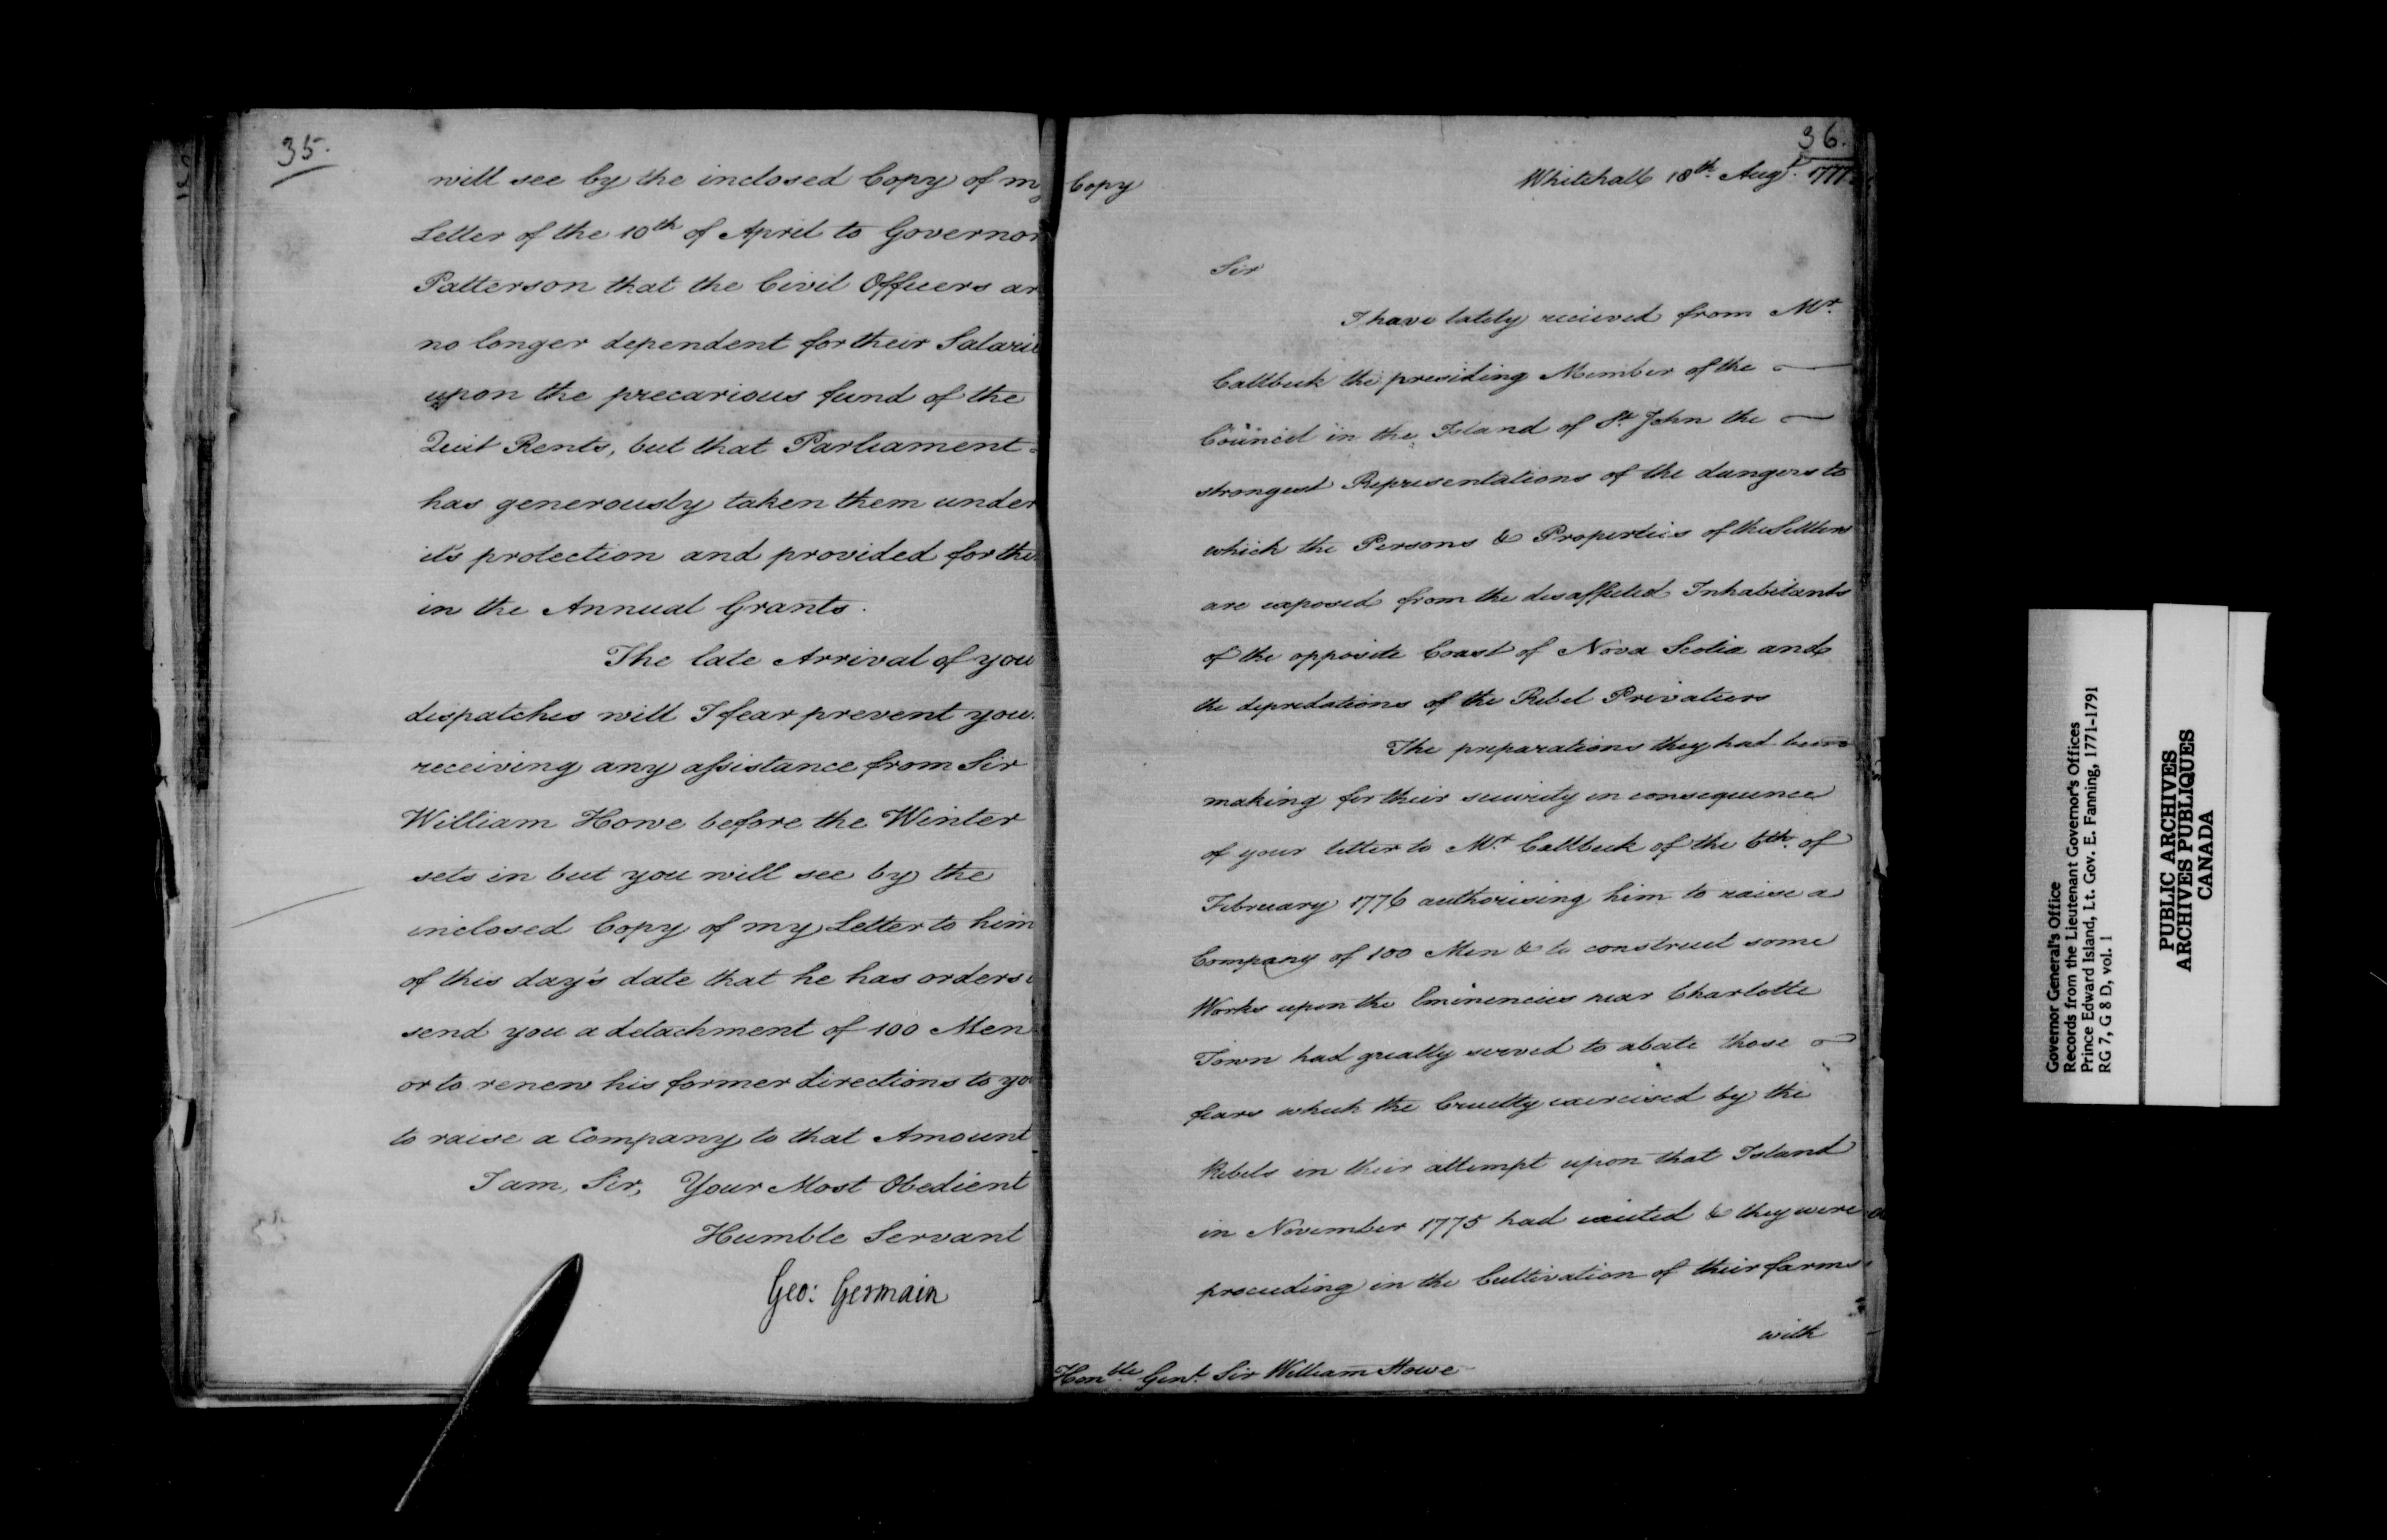 35.
will see by the inclosed Copy of my
Letter of the 10th of April to Governor
Patterson that the Civil Officers ar
no longer dependent for their Salarie
upon the precarious fund of the
Quit Rents, but that Parliament
has generously taken them under
it's protection and provided for the
in the Annual Grants.
The late Arrival of you
dispatches will I fear prevent you
receiving any assistance from Sir
William Howe before the Winter
sets in but you will see by the
inclosed Copy of my Letter to him
of this day's date that he has orders
send you a detachment of 100 Men
or to renew his former directions to yo
to raise a Company to that Amount
I am, Sir, Your Most Obedient
Humble Servant
Geo: Germain
36.
Copy
Whitehall 18th Augt. 1777.
Sir
I have lately recieved from Mr.
Callbeck the presiding Member of the
Council in the Island of St. John the
strongest Representations of the dangers to
which the Persons & Properties of the Settlers
are exposed from the disaffected Inhabitants
of the opposite Coast of Nova Scotia and
the depredations of the Rebel Privateers
The preparations they had been
making for their security in consequence
of your letter to Mr. Callbeck of the 6th. of
February 1776 authorising him to raise a
Company of 100 Men & to construct some
Works upon the Eminencies near Charlotte
Town had greatly served to abate those
fears which the Cruelty exercised by the
Rebels in their attempt upon that Island
in November 1775 had excited & they were
proceeding in the Cultivation of their farms
with
Honble Genl. Sir William Howe
Governor General's Office
Records from the Lieutenant Governor's Offices
Prince Edward Island, Lt. Gov. E. Fanning, 1771-1791
RG 7, G 8 D, vol. 1
PUBLIC ARCHIVES
ARCHIVES PUBLIQUES
CANADA